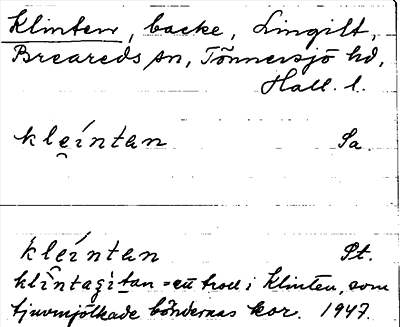 Klinten, backe, Lingilt,
Breareds sn, Tönnersjö hd,
Hall. l.
kle̯íntan Sa.
kle̯íntan St.
klìntagi̇tan = ett troll i Klinten, som
tjuvmjölkade böndernas kor. 1947.